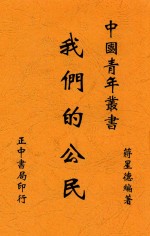 中國青年叢書
我們的公民
蔣星德編著
正中書局印行